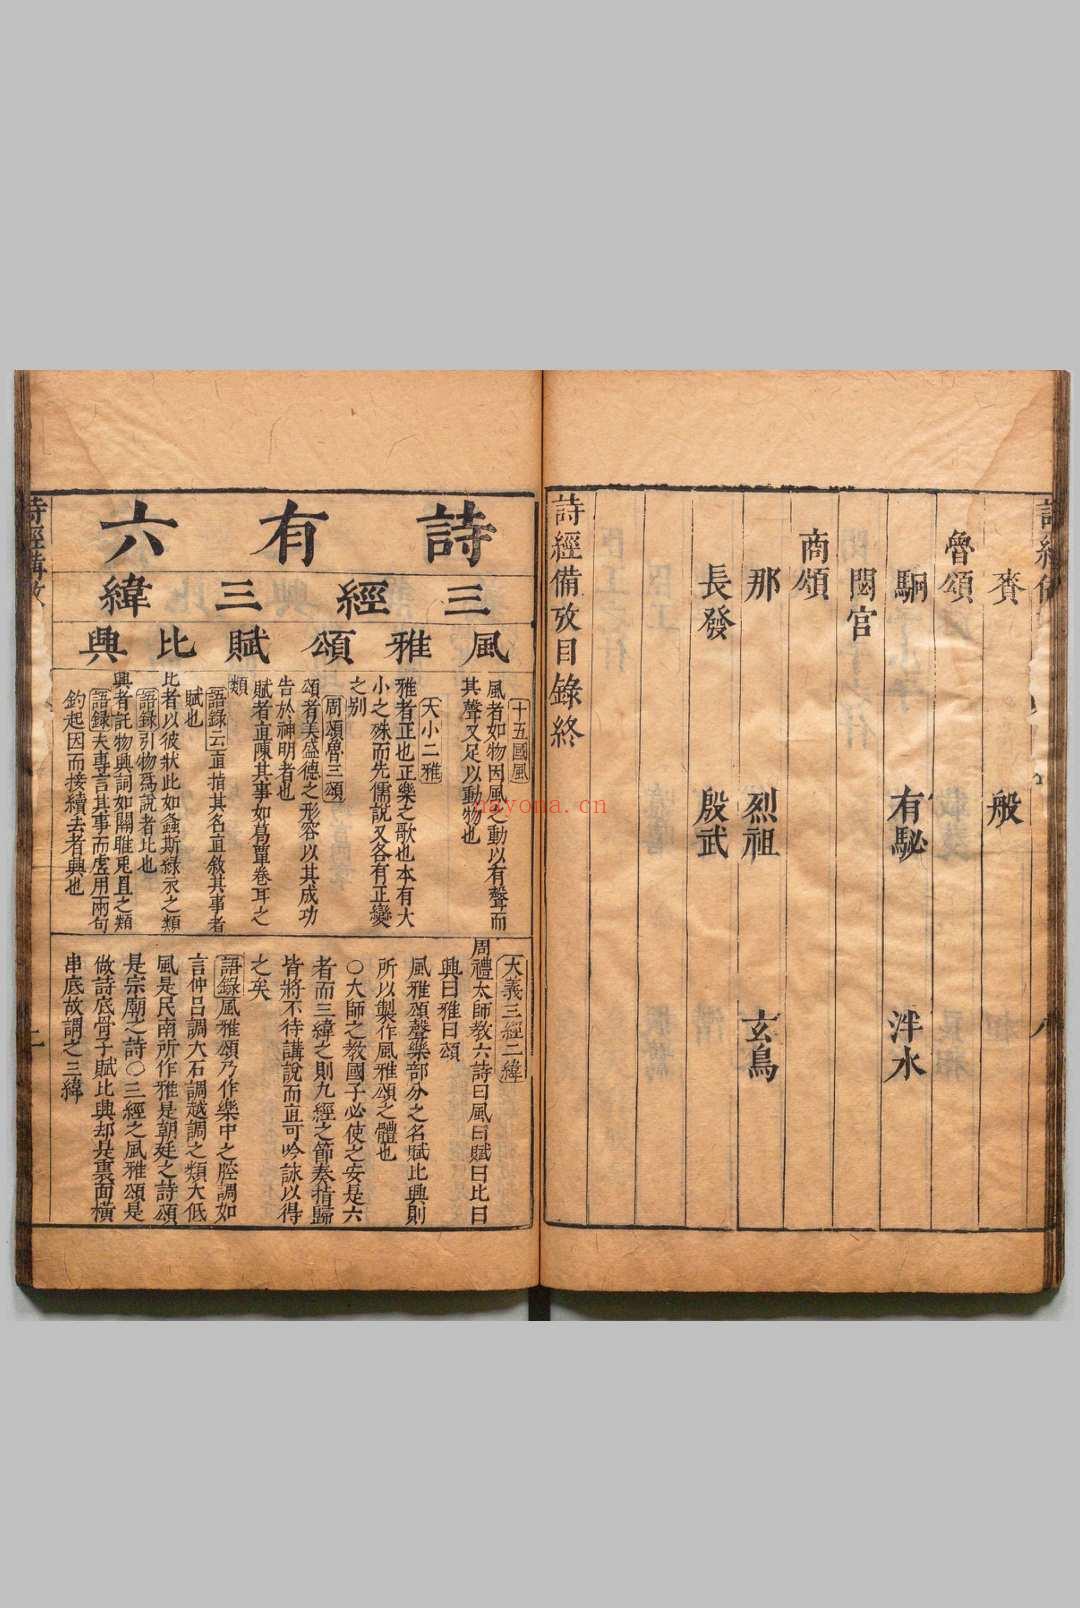 賚　般
魯頌
駉　有駜　泮水
閟宮
商頌
那　烈祖　玄鳥
長發　殷武
詩經備攷目錄終
詩有六
三經三緯
風雅頌賦比興
十五國風
風者如物因風之動以有聲而
其聲又足以動物也
大小二雅
雅者正也正樂之歌也本有大
小之殊而先儒說又各有正變
之别
周頌魯三頌
頌者美盛德之形容以其成功
告於神明者也
賦者直陳其事如葛覃卷耳之
類
語錄云直指其名直敘其事者
賦也
比者以彼狀此如螽斯綠衣之類
語錄引物爲說者比也
興者託物興詞如關雎兎罝之類
語錄夫專言其事而虛用兩句
釣起因而接續去者興也
大義三經二緯
周禮太師教六詩曰風曰賦曰比曰
興曰雅曰頌
風雅頌聲樂部分之名賦比興則
所以製作風雅頌之體也
○大師之教國子必使之安是六
者而三緯之則凢經之節奏指歸
皆將不待講說而直可吟詠以得
之矣
語錄風雅頌乃作樂中之腔調如
言仲呂調大石調越調之類大低
風是民南所作雅是朝廷之詩頌
是宗廟之詩○三經之風雅頌是
做詩底骨子賦比興却是裏面橫
串底故謂之三緯
nayona.cn